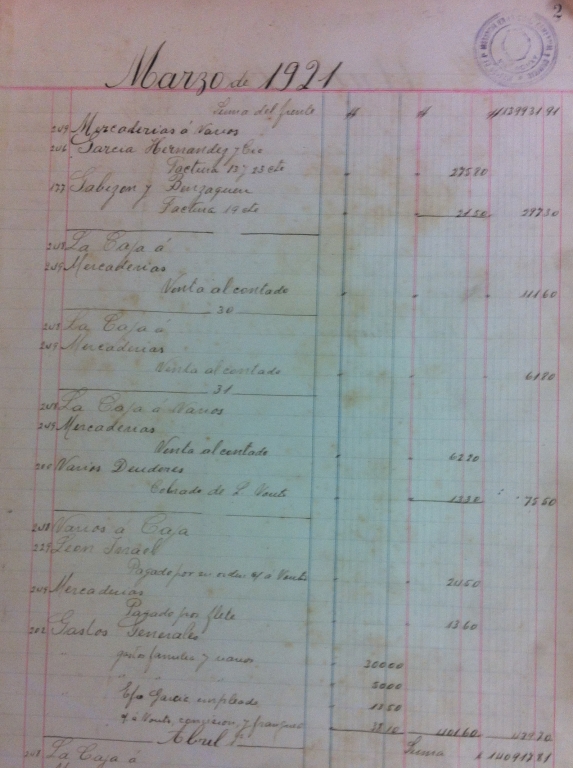 2
Marzo de 1921
Suma del frente $ $ $ 13993191
249 Mercaderias á Varios
246 Garcia Hernandez y Cia
Factura 12 y 23 cte 27580
177 Gabizon y Benzaquen
Factura 19 cte 2150 29730
248 La Caja á
249 Mercaderias
Venta al contado 11160
30
248 La Caja á
249 Mercaderias
Venta al contado 6180
31
248 La Caja á Varios
249 Mercaderias
Venta al contado 6220
200 Varios Deudores
Cobrado de L. 1330 7550
248 Varios á Caja
229 Leon Israel
Pagado por su orden 2450
249 Mercaderias
Pagado por flete 1360
202 Gastos Generales
y varios 30000
5000
Garcia empleado 1350
y franqueo 3810 40160 43970
Abril 1º
Suma $ 14091781
248 La Caja á